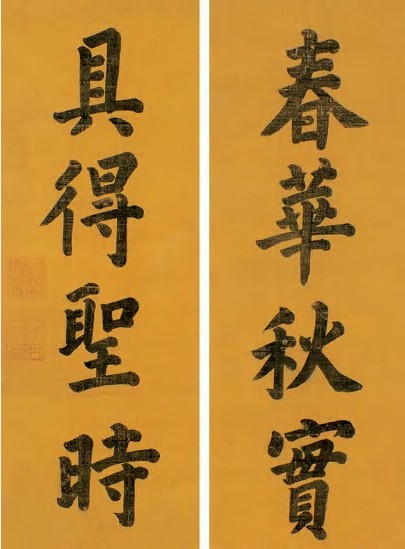 春華秋實
具得聖時